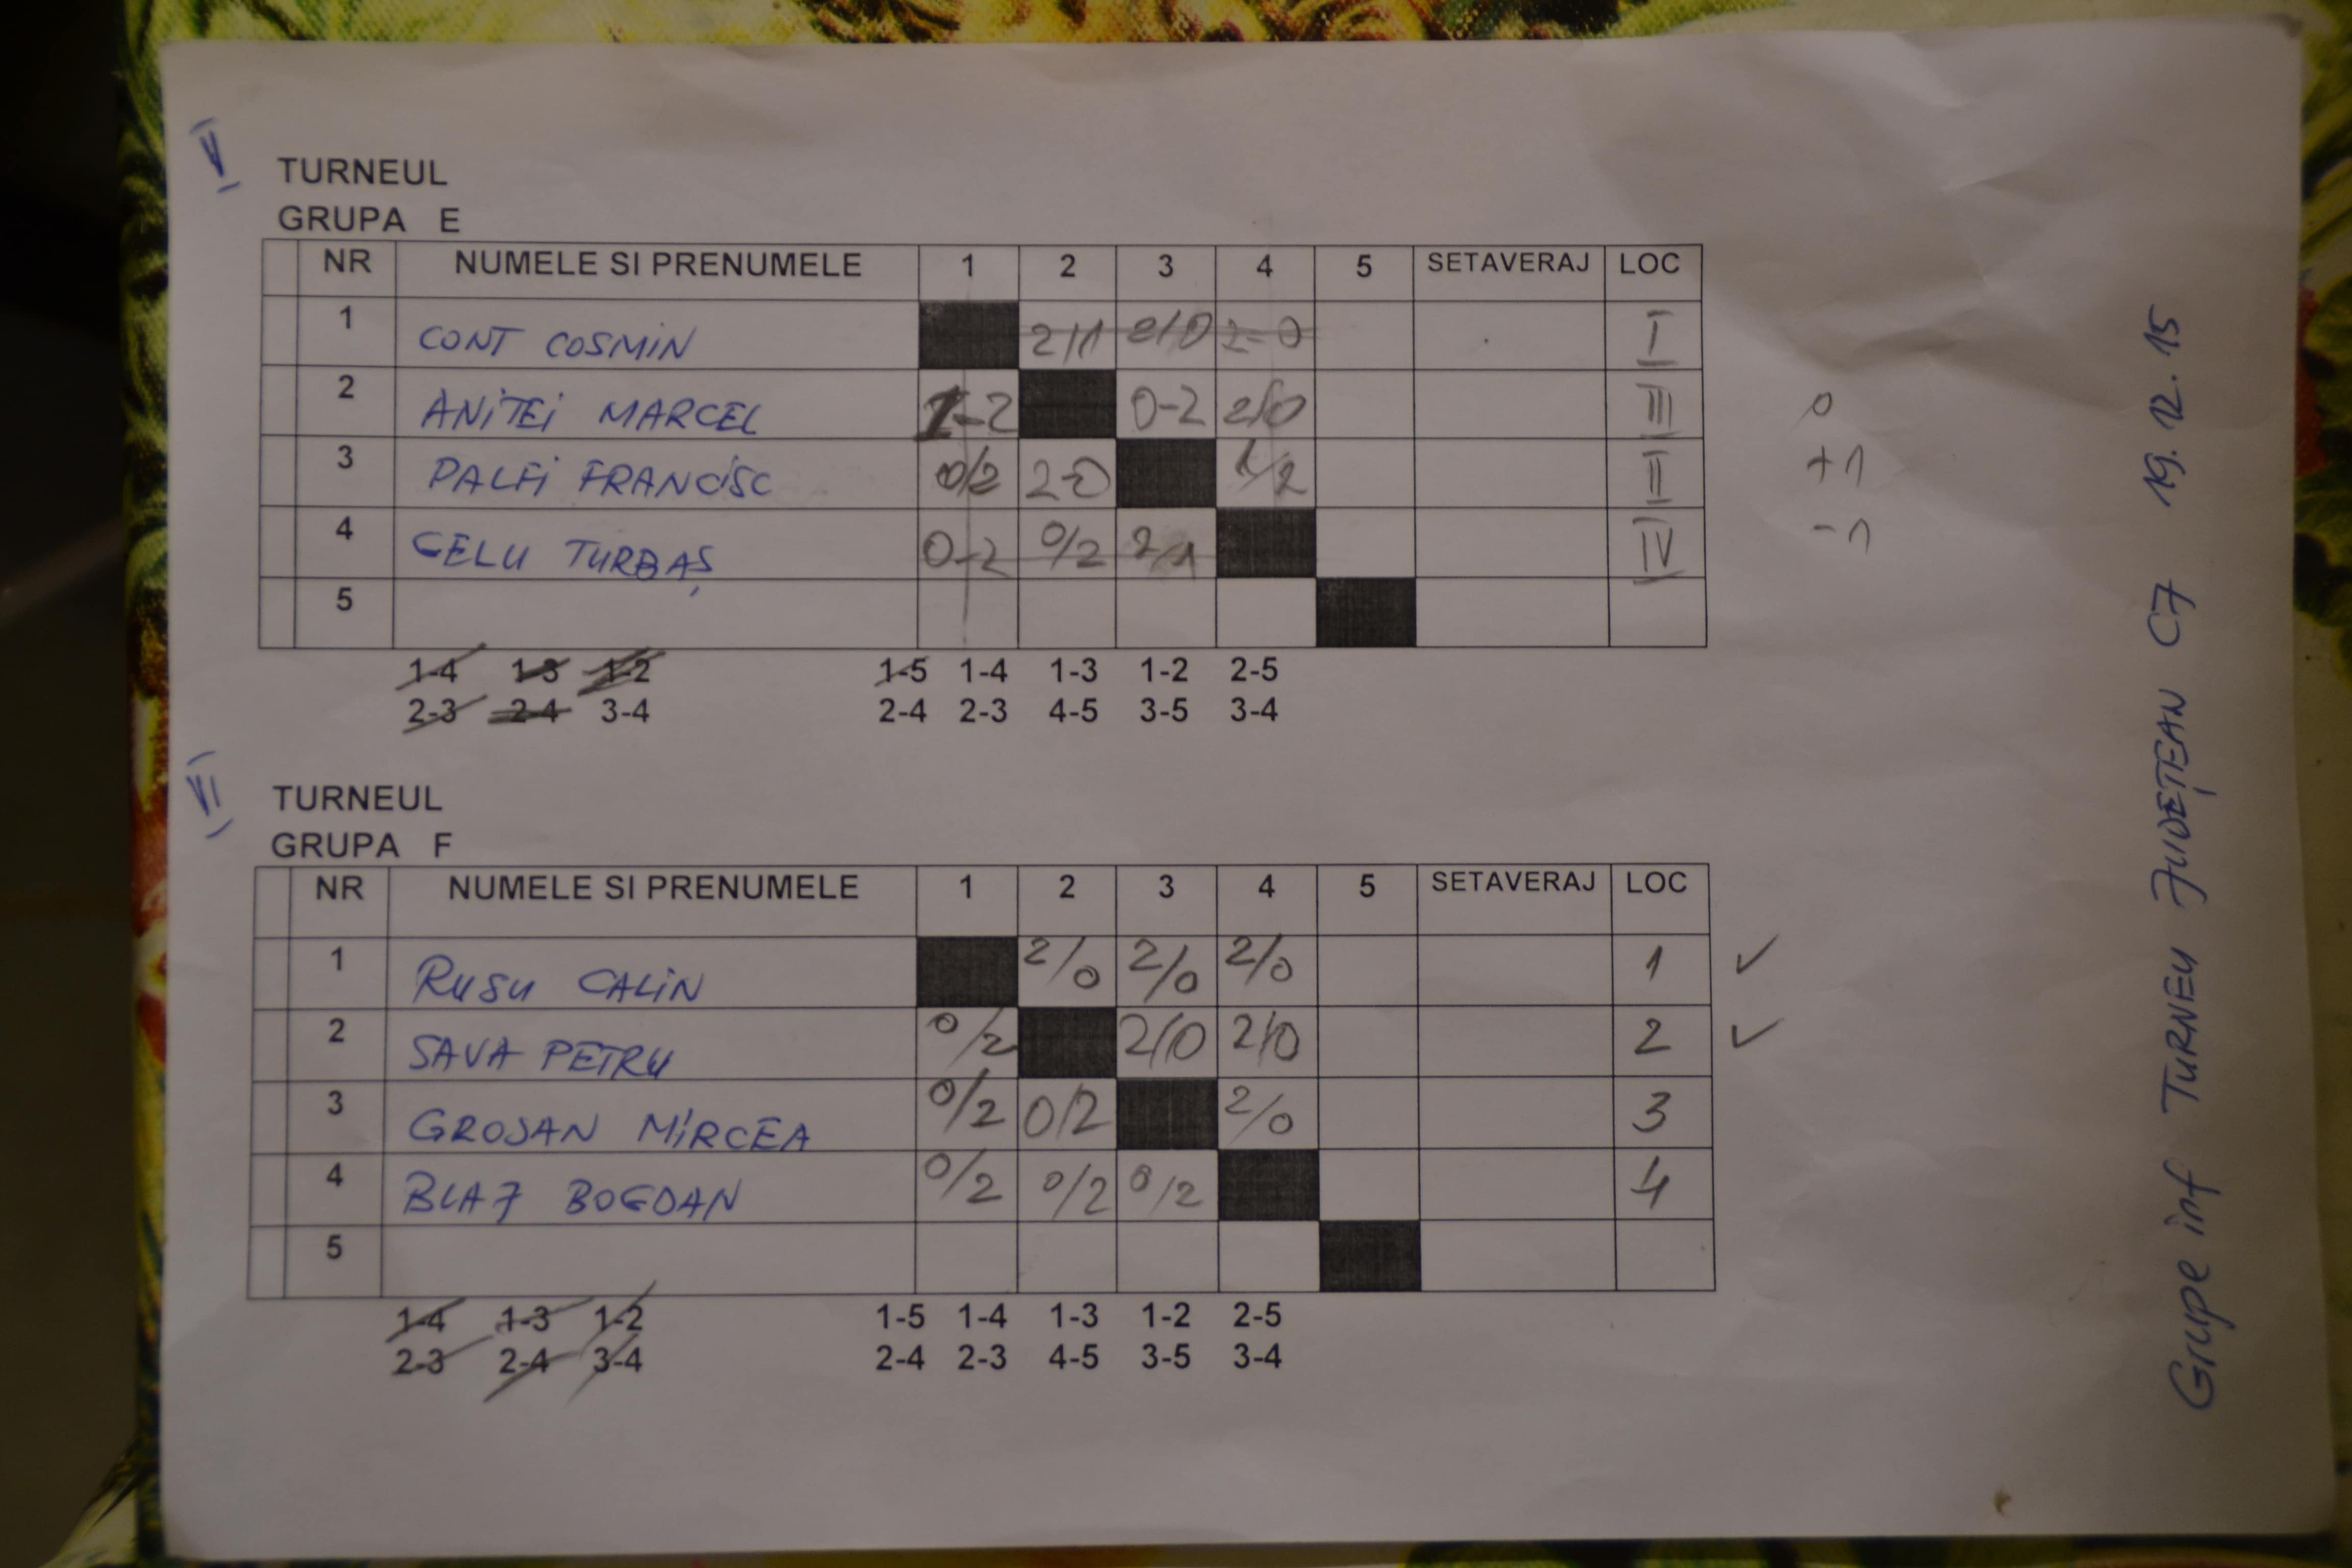 V
TURNEUL
GRUPA E
NR NUMELE SI PRENUMELE 1 2 3 4 5 SETAVERAJ LOC
1 CONT COSMIN 2/1 2/0 2-0 I
2 ANITEI MARCEL 1-2 0-2 2/0 III 0
3 PALFI FRANCISC 0/2 2-0 1/2 II +1
4 CELU TURBAȘ 0-2 0/2 2/1 IV -1
5
1-4 1-3 1-2 1-5 1-4 1-3 1-2 2-5
2-3 2-4 3-4 2-4 2-3 4-5 3-5 3-4
VI
TURNEUL
GRUPA F
NR NUMELE SI PRENUMELE 1 2 3 4 5 SETAVERAJ LOC
1 RUSU CALIN 2/0 2/0 2/0 1 ✓
2 SAVA PETRU 0/2 2/0 2/0 2 ✓
3 GROJAN MIRCEA 0/2 0/2 2/0 3
4 BLAJ BOGDAN 0/2 0/2 0/2 4
5
1-4 1-3 1-2 1-5 1-4 1-3 1-2 2-5
2-3 2-4 3-4 2-4 2-3 4-5 3-5 3-4
Grupe inf TURNEU JUDEȚEAN C7 19.12.15